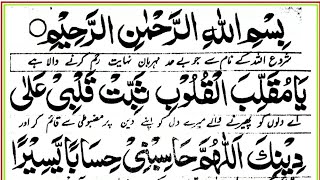 بِسْمِ اللهِ الرَّحْمٰنِ الرَّحِيْمِ
شروع اللہ کے نام سے جو بے حد مہربان نہایت رحم کرنے والا ہے
يَا مُقَلِّبَ الْقُلُوْبِ ثَبِّتْ قَلْبِيْ عَلٰى
اے دلوں کو پھیرنے والے میرے دل کو اپنے دین پر مضبوطی سے قائم کر اور
دِيْنِكَ اَللّٰهُمَّ حَاسِبْنِيْ حِسَابًا يَّسِيْرًا